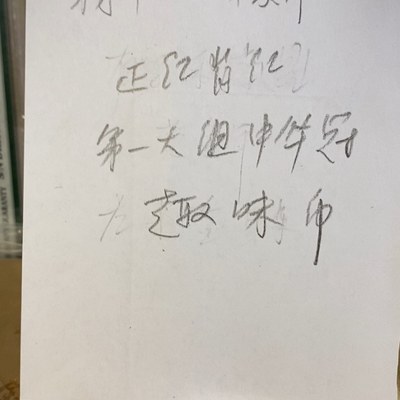 正红背红
第一大组中华冠
趣味币